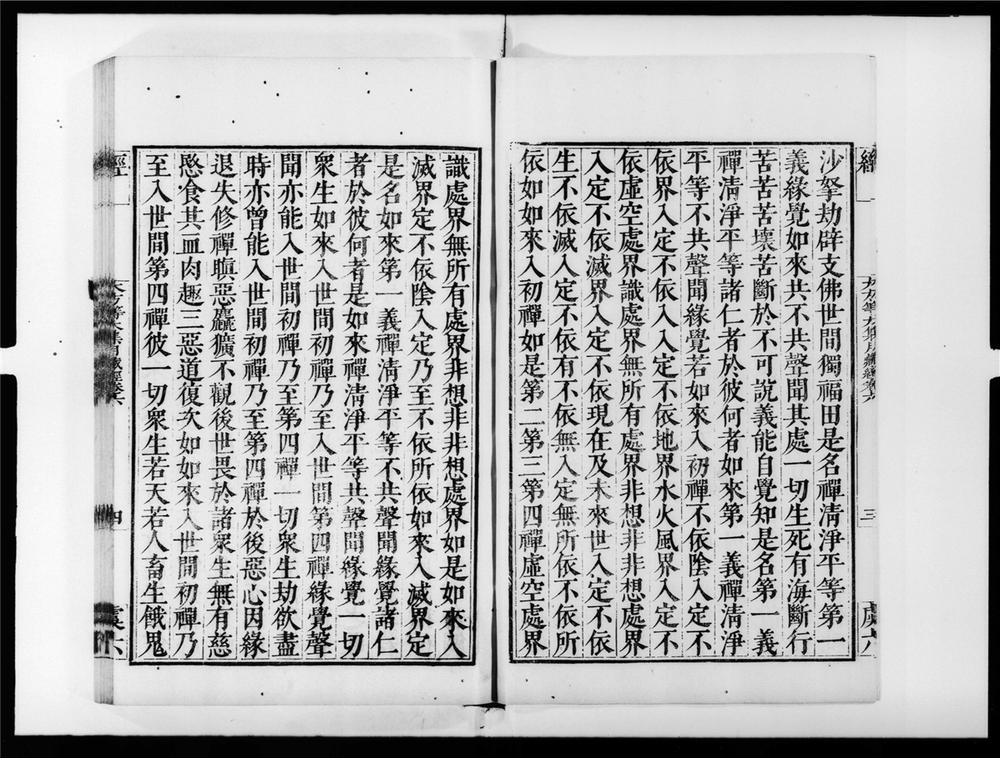 沙拏劫辟支佛世間獨福田是名禪清淨平等第一
義緣覺如來共不共聲聞其處一切生死有海斷行
苦苦苦壞苦斷於不可說義能自覺知是名第一義
禪清淨平等諸仁者於彼何者如來第一義禪清淨
平等不共聲聞緣覺若如來入初禪不依陰入定不
依界入定不依入入定不依地界水火風界入定不
依虛空處界識處界無所有處界非想非非想處界
入定不依滅界入定不依現在及未來世入定不依
生不依滅入定不依有不依無入定無所依不依所
依如如來入初禪如是第二第三第四禪虛空處界
識處界無所有處界非想非非想處界如是如來入
滅界定不依陰入定乃至不依所依如來入滅界定
是名如來第一義禪清淨平等不共聲聞緣覺諸仁
者於彼何者是如來禪清淨平等共聲聞緣覺一切
衆生如來入世間初禪乃至入世間第四禪緣覺聲
聞亦能入世間初禪乃至第四禪一切衆生劫欲盡
時亦曾能入世間初禪乃至第四禪於後惡心因緣
退失修禪瞋惡麤獷不觀後世畏於諸衆生無有慈
愍食其血肉趣三惡道復次如如來入世間初禪乃
至入世間第四禪彼一切衆生若天若人畜生餓鬼
經一
四
虞六